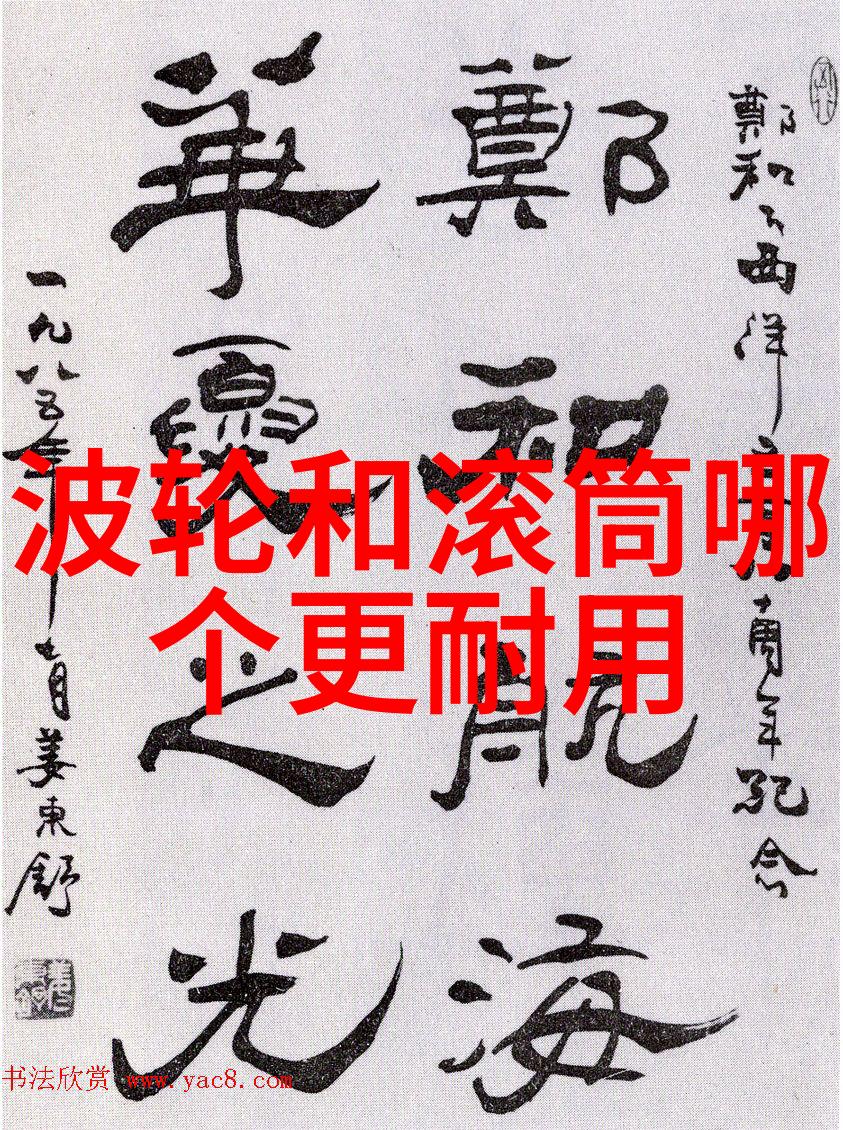 波轮和滚筒哪
个更耐用
鄭和下西洋
十周年紀念
鄭和航海
華夏之光
一九八五年
月姜東舒
书法欣赏 www.yac8.com